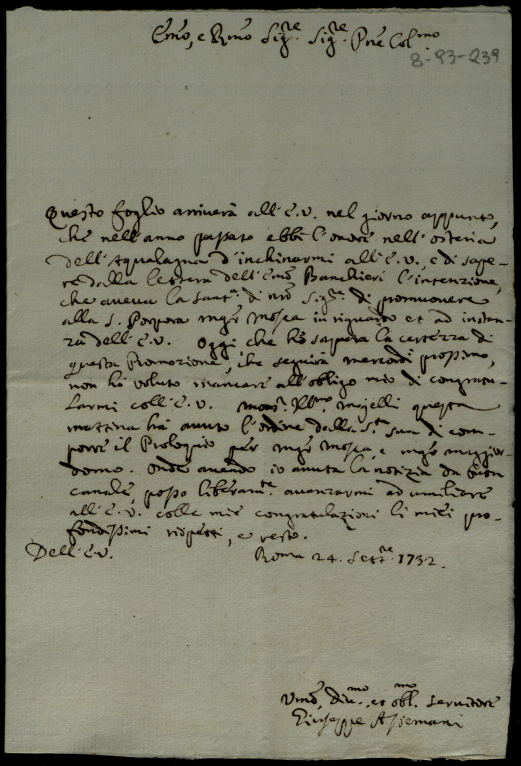 Emo, e Rmo Sigre Sigre Pne Colmo
8-93-239
Questo foglio arriverà all'E.V. nel giorno appunto,
che nell'anno passato ebbi l'onore nell'osteria
dell'Aqualagna d'inchinarmi all'E.V., e di sape-
re dalla lettera dell'Emo Banchieri l'intenzione,
che aveva la Santà di nro Sigre di promuovere
alla S. Porpora mgr Mosca in riguardo et ad instan-
za dell'E.V. Oggi che hò saputa la certezza di
questa Promozione, che seguirà mercordì prossimo,
non hò voluto mancare all'obligo mio di congratu-
larmi coll'E.V. Monsr Illmo Majelli questa
mattina hà avuto l'ordine dalla Stà Sua di com-
porre il Prologio per mgr Mosca, e mgr maggior-
domo. Onde avendo io avuta la notizia da buon
canale, posso liberamte avanzarmi ad umiliare
all'E.V. colle mie congratulazioni li miei pro-
fondissimi rispetti, e resto.
Dell'E.V. Roma 24. Settre 1732.
Umo, divmo, et oblmo servitore
Giuseppe Assemani